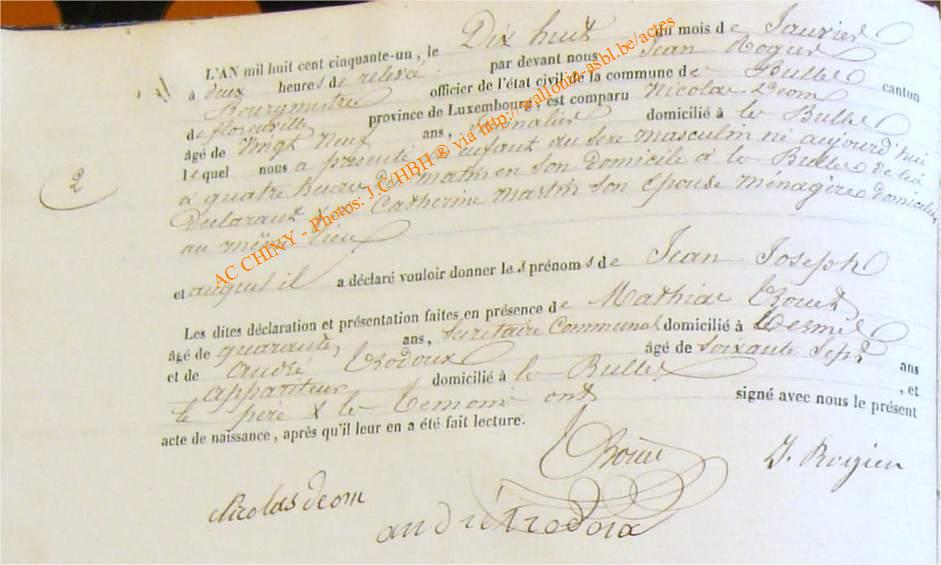 L'AN mil huit cent cinquante-un, le Dix huit du mois de Janvier
à deux heures de relevé par devant nous Jean Rogier
Bourgmestre officier de l'état civil de la commune de Bulles canton
de florenville province de Luxembourg, est comparu Nicolas Deom
âgé de Vingt Neuf ans, domicilié à le Bulles
lequel nous a présenté un enfant du sexe masculin né aujourd'hui
a quatre heure du matin en son domicile à le Bulles de lui
Déclarant & de Catherine Martin son épouse Ménagère domiciliée
au même lieu
2
et auquel il a déclaré vouloir donner les prénoms de Jean Joseph
Les dites déclaration et présentation faites en présence de Mathias
âgé de quarante ans, Secrétaire Communal domicilié à
et de André âgé de soixante sept ans
appariteur domicilié à le Bulles, et
le père & le temoins ont signé avec nous le présent
acte de naissance, après qu'il leur en a été fait lecture.
J. Rogier
Nicolas deom
andré
AC CHINY - Photos: J.C/HBH ® via http://wallonia-asbl.be/actes